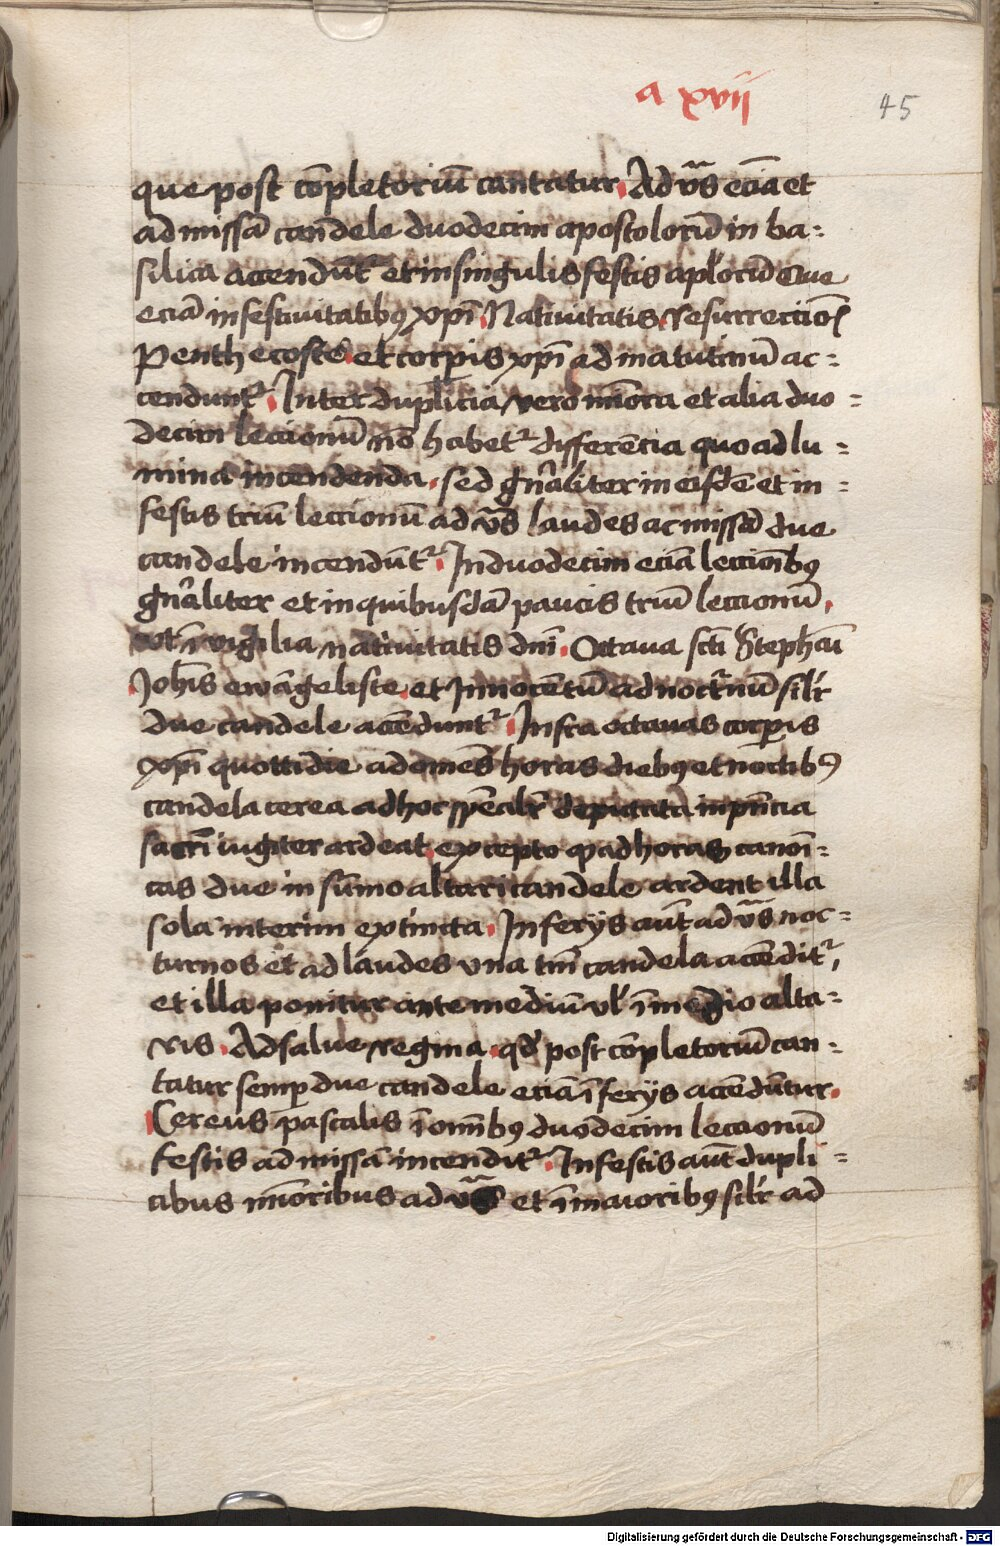 a xvii
45
que post cōpletoriū cantatur. Ad vr̄s eciā et
ad missā candele duodecim apostolorū in ba=
silica accendūtᷣ et in singulis festis aplorū Que
eciā in festiuitatibꝫ xpī. Natiuitatis. resurrectiōs
Penthecostes. et corpis xpī ad matutinū ac=
cenduntᷣ. Inter duplicia vero mīora et alia duo=
decim leccionū nō habetᷣ differēcia quo ad lu=
mina incendenda. sed gn̄aliter in eisdē et in=
festis triū leccionū ad vr̄s laudes ac missā due
candele incendūtᷣ. In duodecim eciā leccionībꝫ
gn̄aliter et in quibusdā paucis triū leccionū.
vt ī vigilia natiuitatis dnī. Octaua scti Stephani
Johīs ewāgeliste. et Innocētū ad noctr̄nū silr̄
due candele accēduntᷣ. Infra octauas corpis
xpī quottidie ad omēs horas diebꝫ et noctibꝫ
candela cerea ad hoc spēalr̄ deputata in pn̄cia
sacrī iugiter ardeat. excepto qͥ ad horas canoni=
cas due in sūmo altari candele ardent illa
sola interim extincta. In ferijs aūt ad vr̄s noc=
turnos et ad laudes vna tm̄ candela accēditᷣ,
et illa ponitur ante mediū vl̄ ī medio alta=
ris. Ad salue regina. qd̄ post cōpletoriū can=
tatur semp due candele eciā ī ferijs accēdūtur.
Cereus pascalis ī omībꝫ duodecim leccionū
festis ad missā incenditᷣ. In festis aūt dupli=
cibus mīoribus ad vr̄s et ī maioribꝫ silr̄ ad
Digitalisierung gefördert durch die Deutsche Forschungsgemeinschaft - DFG